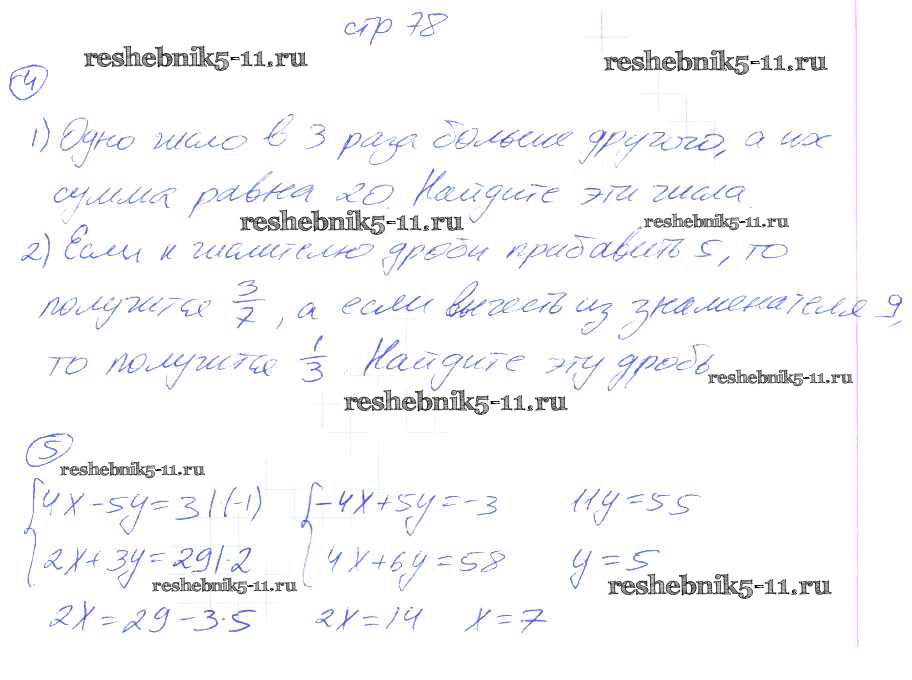 стр 78
reshebnik5-11.ru reshebnik5-11.ru
4
1) Одно число в 3 раза больше другого, а их
сумма равна 20. Найдите эти числа.
reshebnik5-11.ru reshebnik5-11.ru
2) Если к числителю дроби прибавить 5, то
получится 3/7, а если вычесть из знаменателя 9,
то получится 1/3. Найдите эту дробь
reshebnik5-11.ru
reshebnik5-11.ru
5
reshebnik5-11.ru
{4x-5y=3|(-1) {-4x+5y=-3 11y=55
{2x+3y=29|·2 {4x+6y=58 y=5
reshebnik5-11.ru reshebnik5-11.ru
2x=29-3·5 2x=14 x=7